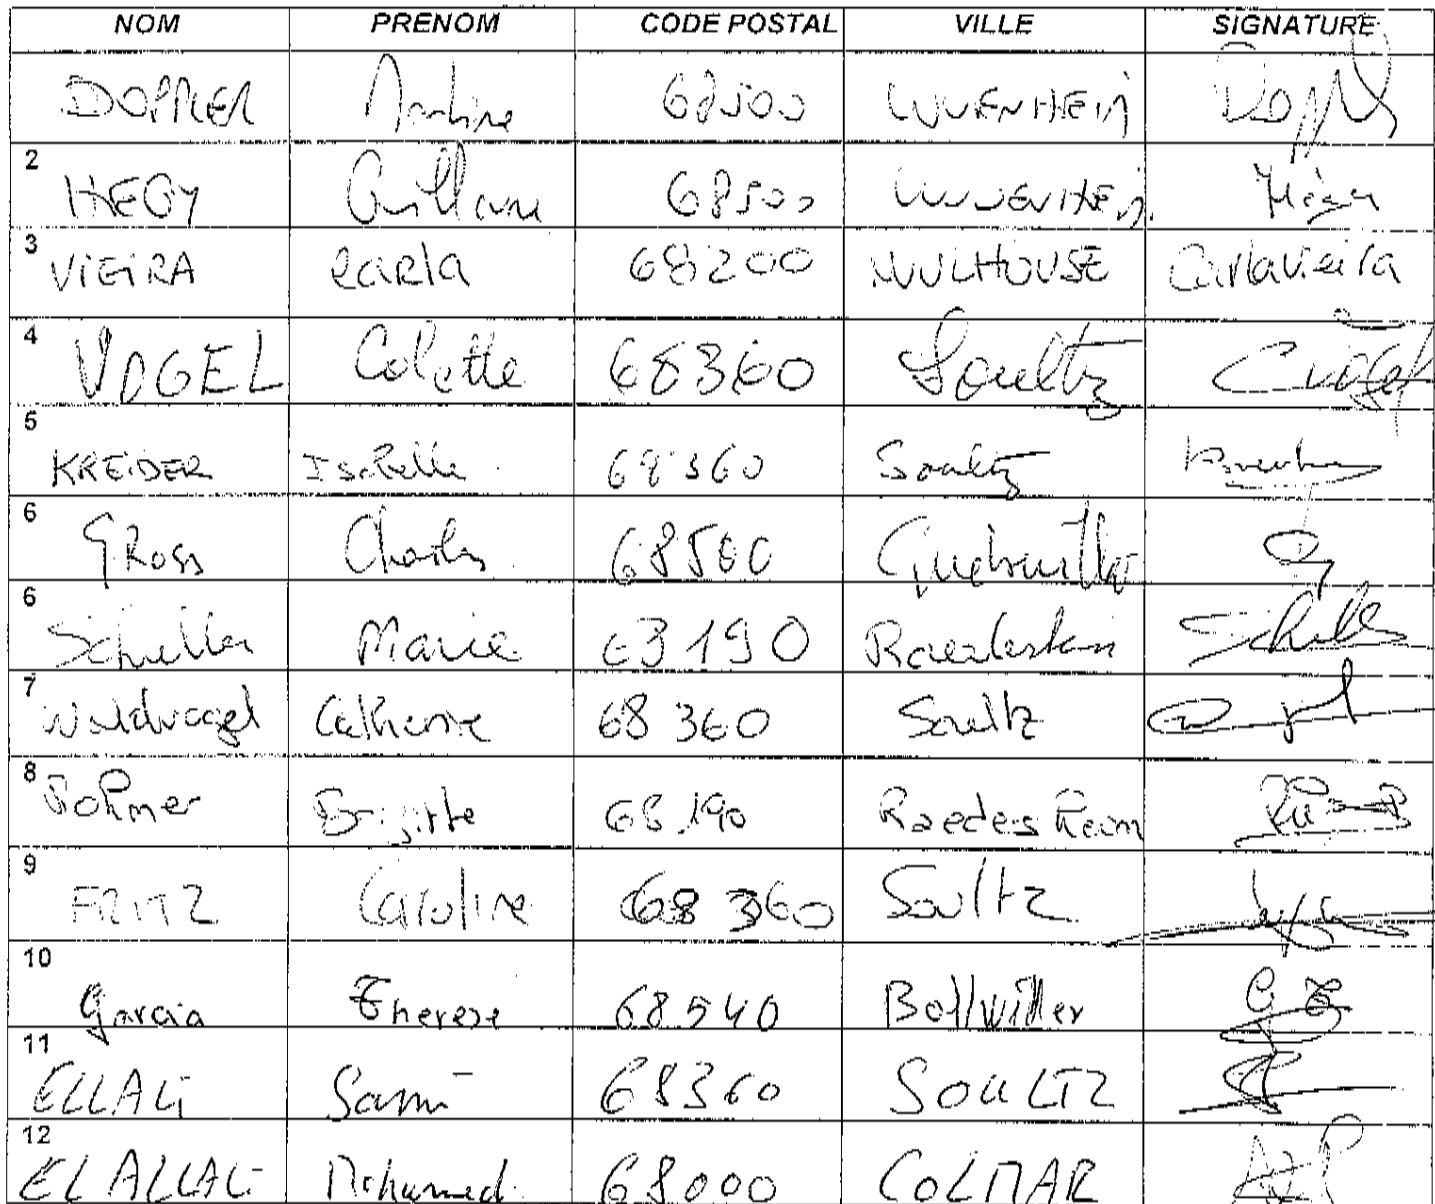 NOM PRENOM CODE POSTAL VILLE SIGNATURE
DOPPLER Martine 68500 WUENHEIM Doppl
2 HEGY Guillaume 68500 WUENHEIM Hegy
3 VIEIRA CARLA 68200 MULHOUSE Carla Vieira
4 VOGEL Colette 68360 Soultz C Vogel
5 KREIDER Isabelle 68360 Soultz
6 GRoss Charles 68500 Guebwiller
6 Schuller Marie 68190 Raedersheim
7 Waldvogel Catherine 68 360 Soultz
8 Brigitte 68 190 Raedersheim
9 FRITZ Caroline 68 360 Soultz
10 Garcia Therese 68540 Bollwiller
11 ELLALi Sami 68360 SOULTZ
12 EL ALLALi Mohamed 68000 COLMAR